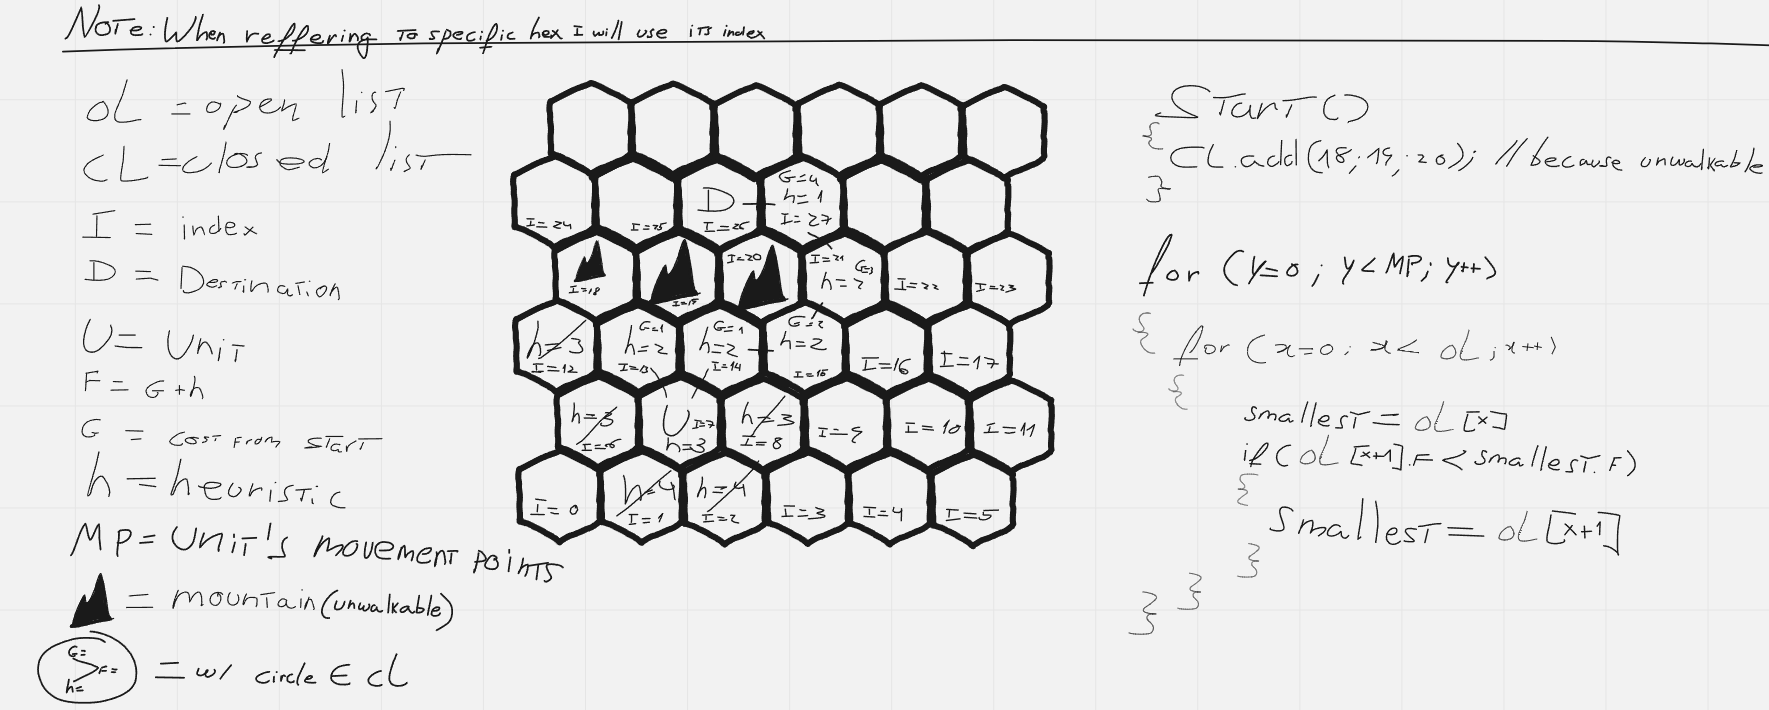 NOTE: When reffering to specific hex I will use its index
OL = open list
CL = closed list
I = index
D = Destination
U = Unit
F = G + h
G = cost from start
h = heuristic
MP = Unit's movement points
= mountain (unwalkable)
G=
h=
F=
= w/ circle ∈ CL
I=24
I=25
D
I=26
G=4
h=1
I=27
I=18
I=19
I=20
I=21
G=3
h=2
I=22
I=23
h=3
I=12
G=1
h=2
I=13
G=1
h=2
I=14
G=2
h=2
I=15
I=16
I=17
h=3
I=6
U I=7
h=3
h=3
I=8
I=9
I=10
I=11
I=0
h=4
I=1
h=4
I=2
I=3
I=4
I=5
Start()
{
CL.add(18;19;20); //because unwalkable
}
for (y=0; y<MP; y++)
{
for (x=0; x< OL; x++)
{
smallest = OL[x]
if (OL[x+1].F < smallest.F)
{
smallest = OL[x+1]
}
}
}